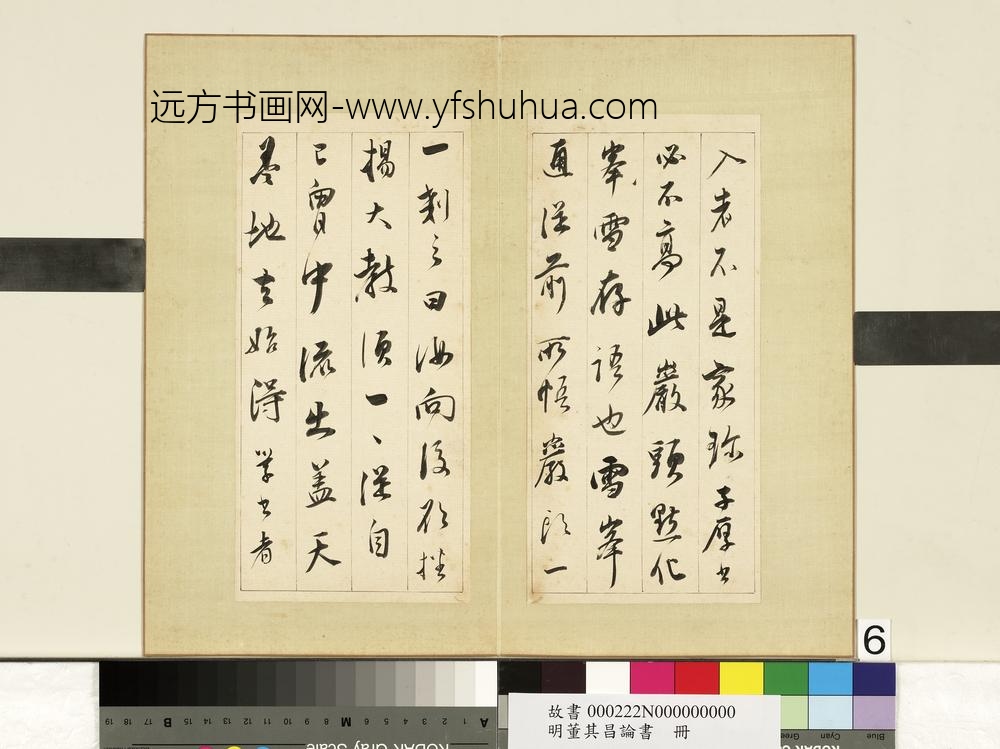 远方书画网-www.yfshuhua.com
入者不是家珍子厚书
必不高此巖頭點化
峯雪存語也雪峯
通從前所悟巖頭一
一剎之曰汝向後欲播
揚大教須一一從自
己胸中流出盖天
盖地去始得學書者
6
故書 000222N000000000
明董其昌論書 冊
19 18 17 16 15 14 13 12 11 10 9 8 7 6 5 4 3 2 1
B M A
KODAK Gray Scale
Blue Cyan Green